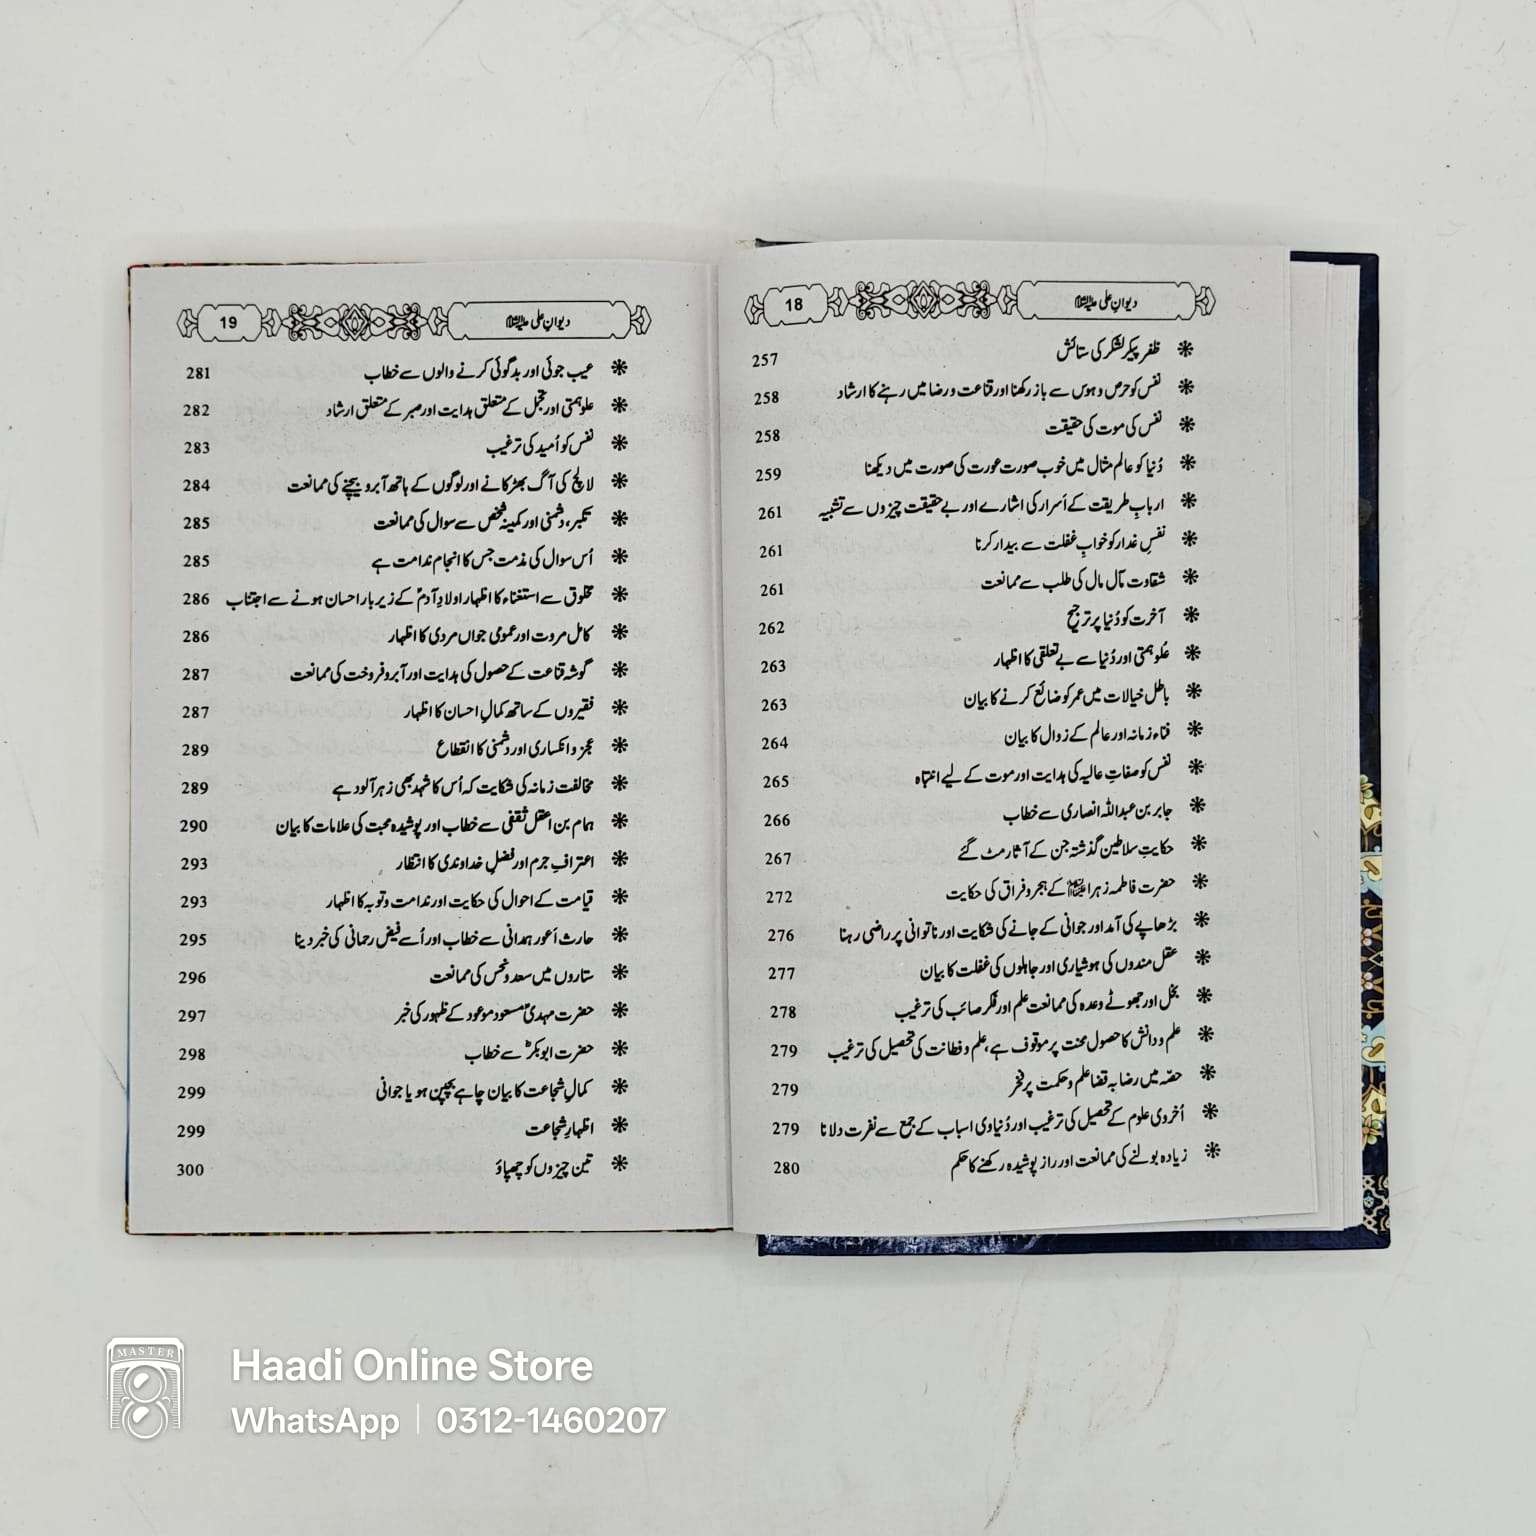 دیوانِ علی علیہ السلام 18
ظفر پیکر لشکر کی ستائش 257
نفس کو حرص و ہوس سے باز رکھنا اور قناعت و رضا میں رہنے کا ارشاد 258
نفس کی موت کی حقیقت 258
دُنیا کو عالم مثال میں خوب صورت عورت کی صورت میں دیکھنا 259
اربابِ طریقت کے اَسرار کی اشارے اور بے حقیقت چیزوں سے تشبیہ 261
نفسِ غدار کو خوابِ غفلت سے بیدار کرنا 261
شقاوت مآل مال کی طلب سے ممانعت 261
آخرت کو دُنیا پر ترجیح 262
عُلو ہمتی اور دُنیا سے بے تعلقی کا اظہار 263
باطل خیالات میں عمر کو ضائع کرنے کا بیان 263
فناء زمانہ اور عالم کے زوال کا بیان 264
نفس کو صفاتِ عالیہ کی ہدایت اور موت کے لیے انتباہ 265
جابر بن عبداللہ انصاری سے خطاب 266
حکایتِ سلاطین گذشتہ جن کے آثار مٹ گئے 267
حضرت فاطمہ زہرا کے ہجر و فراق کی حکایت 272
بڑھاپے کی آمد اور جوانی کے جانے کی شکایت اور ناتوانی پر راضی رہنا 276
عقل مندوں کی ہوشیاری اور جاہلوں کی غفلت کا بیان 277
بخل اور جھوٹے وعدہ کی ممانعت علم اور فکر صائب کی ترغیب 278
علم و دانش کا حصول محنت پر موقوف ہے، علم و فطانت کی تحصیل کی ترغیب 279
حصّہ میں رضا بہ قضا علم و حکمت پر فخر 279
اُخروی علوم کے تحصیل کی ترغیب اور دُنیاوی اسباب کے جمع سے نفرت دلانا 279
زیادہ بولنے کی ممانعت اور راز پوشیدہ رکھنے کا حکم 280
دیوانِ علی علیہ السلام 19
عیب جوئی اور بدگوئی کرنے والوں سے خطاب 281
علو ہمتی اور تجمل کے متعلق ہدایت اور صبر کے متعلق ارشاد 282
نفس کو اُمید کی ترغیب 283
لالچ کی آگ بھڑکانے اور لوگوں کے ہاتھ آبرو بیچنے کی ممانعت 284
تکبر، دشمنی اور کمینہ شخص سے سوال کی ممانعت 285
اُس سوال کی مذمت جس کا انجام ندامت ہے 285
مخلوق سے استغناء کا اظہار اولادِ آدمؑ کے زیر بار احسان ہونے سے اجتناب 286
کامل مروت اور عمومی جواں مردی کا اظہار 286
گوشہ قناعت کے حصول کی ہدایت اور آبرو فروخت کی ممانعت 287
فقیروں کے ساتھ کمالِ احسان کا اظہار 287
عجز و انکساری اور دشمنی کا انقطاع 289
مخالفت زمانہ کی شکایت کہ اُس کا شہد بھی زہر آلود ہے 289
ہمام بن اعقل ثقفی سے خطاب اور پوشیدہ محبت کی علامات کا بیان 290
اعترافِ جرم اور فضلِ خداوندی کا انتظار 293
قیامت کے احوال کی حکایت اور ندامت و توبہ کا اظہار 293
حارث اَعور ہمدانی سے خطاب اور اُسے فیض رحمانی کی خبر دینا 295
ستاروں میں سعد و نحس کی ممانعت 296
حضرت مہدیؑ مسعود موعود کے ظہور کی خبر 297
حضرت ابوبکرؓ سے خطاب 298
کمالِ شجاعت کا بیان چاہے بچپن ہو یا جوانی 299
اظہارِ شجاعت 299
تین چیزوں کو چھپاؤ 300
MASTER
Haadi Online Store
WhatsApp | 0312-1460207